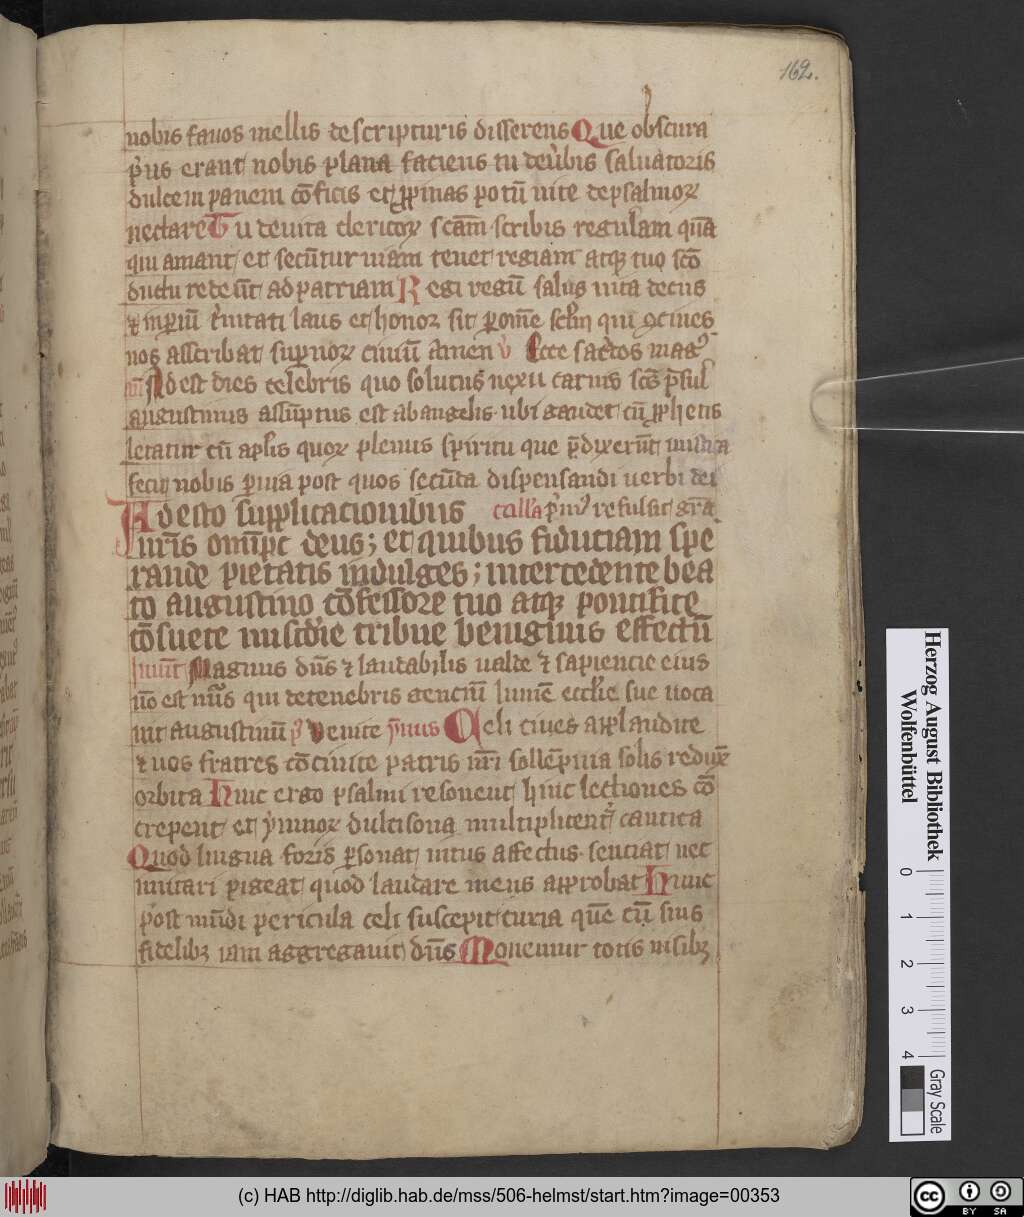 162.
nobis fauos mellis de scripturis disserens Que obscura
p'us erant nobis plana faciens tu de ṽbis saluatoris
dulcem panem cõficis et ꝓpinas potũ uite de psalmoꝝ
nectare Tu de uita clericoꝝ scãm scribis regulam quã
qui amant et secũtur uiam tenet regiam atqꝫ tuo scõ
ductu redeũt ad patriam Regi regũ salus uita decus
⁊ inꝑiũ t'nitati laus et honoꝛ sit ꝑ om̃e sctm̃ qui ꝯciues
nos asscribat suꝑnoꝝ ciuiũ Amen ṽ Ecce sac̃dos mag⁹
Adest dies celebris quo solutus nexu carnis sc̃s p̃sul
augustinus assũptus est ab angelis ubi gaudet cũ ꝓphetis
letatur cũ ap̃lis quoꝝ plenus spiritu que p̃dixerũt mistica
fecit nobis ꝑuia post quos secũda dispensandi uerbi dei
Adesto supplicacionibus coll'a p'm⁹ refulsit gr̃a
n̄ris om̃ip̃c deus; et quibus fiduciam spe
rande pietatis indulges; intercedente bea
to augustino cõfessoꝛe tuo atqꝫ pontifice
cõsuete mĩscdie tribue benignus effectũ
Inuit̃ Magnus dñs ⁊ laudabilis ualde ⁊ sapiencie eius
nõ est nũs qui de tenebris genciũ lumẽ ecclie sue uoca
uit augustinũ p̃ Venite ymnus Celi ciues applaudite
⁊ uos fratres cõcinite patris nr̃i sollẽpnia solis reduxẽ
oꝛbita Hinc ergo psalmi resonent hinc lectiones cõ
crepent et ymnoꝝ dulcisona multiplicent' cantica
Quod lingua foꝛis ꝑsonat intus affectus senciat nec
imitari pigeat quod laudare mens approbat Hunc
post mũdi pericula celi suscepit curia quẽ cũ suis
fidelibꝫ iam aggregauit dñs Monemur totis uisibꝫ
Herzog August Bibliothek
Wolfenbüttel
0 1 2 3 4
Gray Scale
(c) HAB http://diglib.hab.de/mss/506-helmst/start.htm?image=00353
cc BY SA